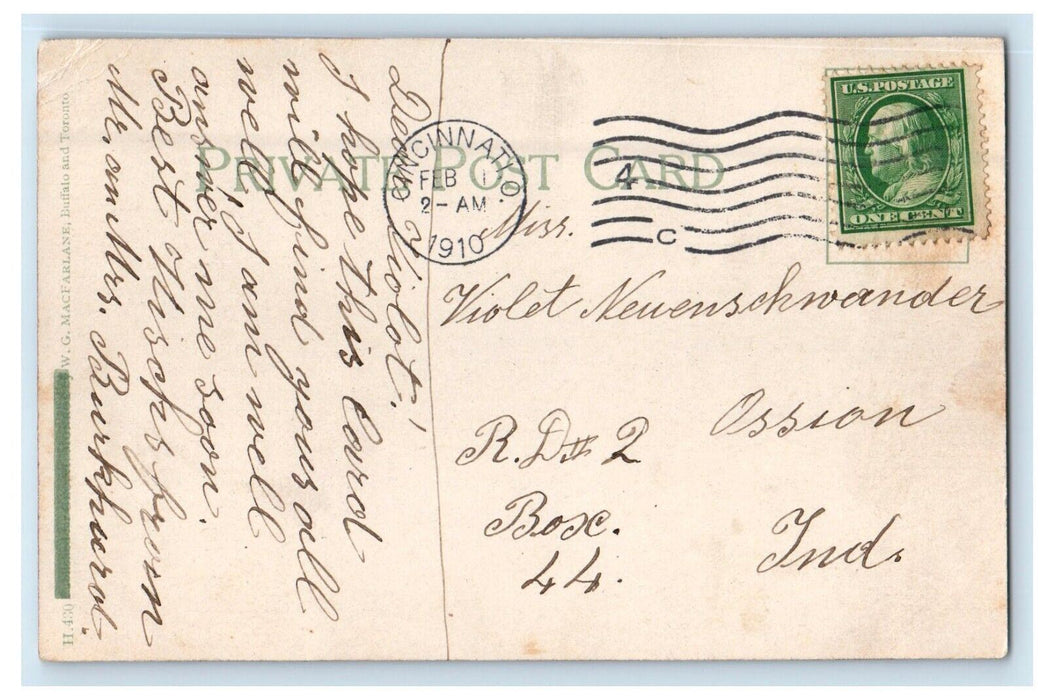 PRIVATE POST CARD
CINCINNATI, O.
FEB 1
2-AM
1910
4
C
U.S. POSTAGE
ONE CENT
Miss.
Violet Neuenschwander
R.D# 2
Ossion
Box.
44.
Ind.
I hope this Card
will find yous all
well, I am well
answer me soon.
Best from
Mr. Burkhard.
H.430
W. G. MACFARLANE, Buffalo and Toronto.